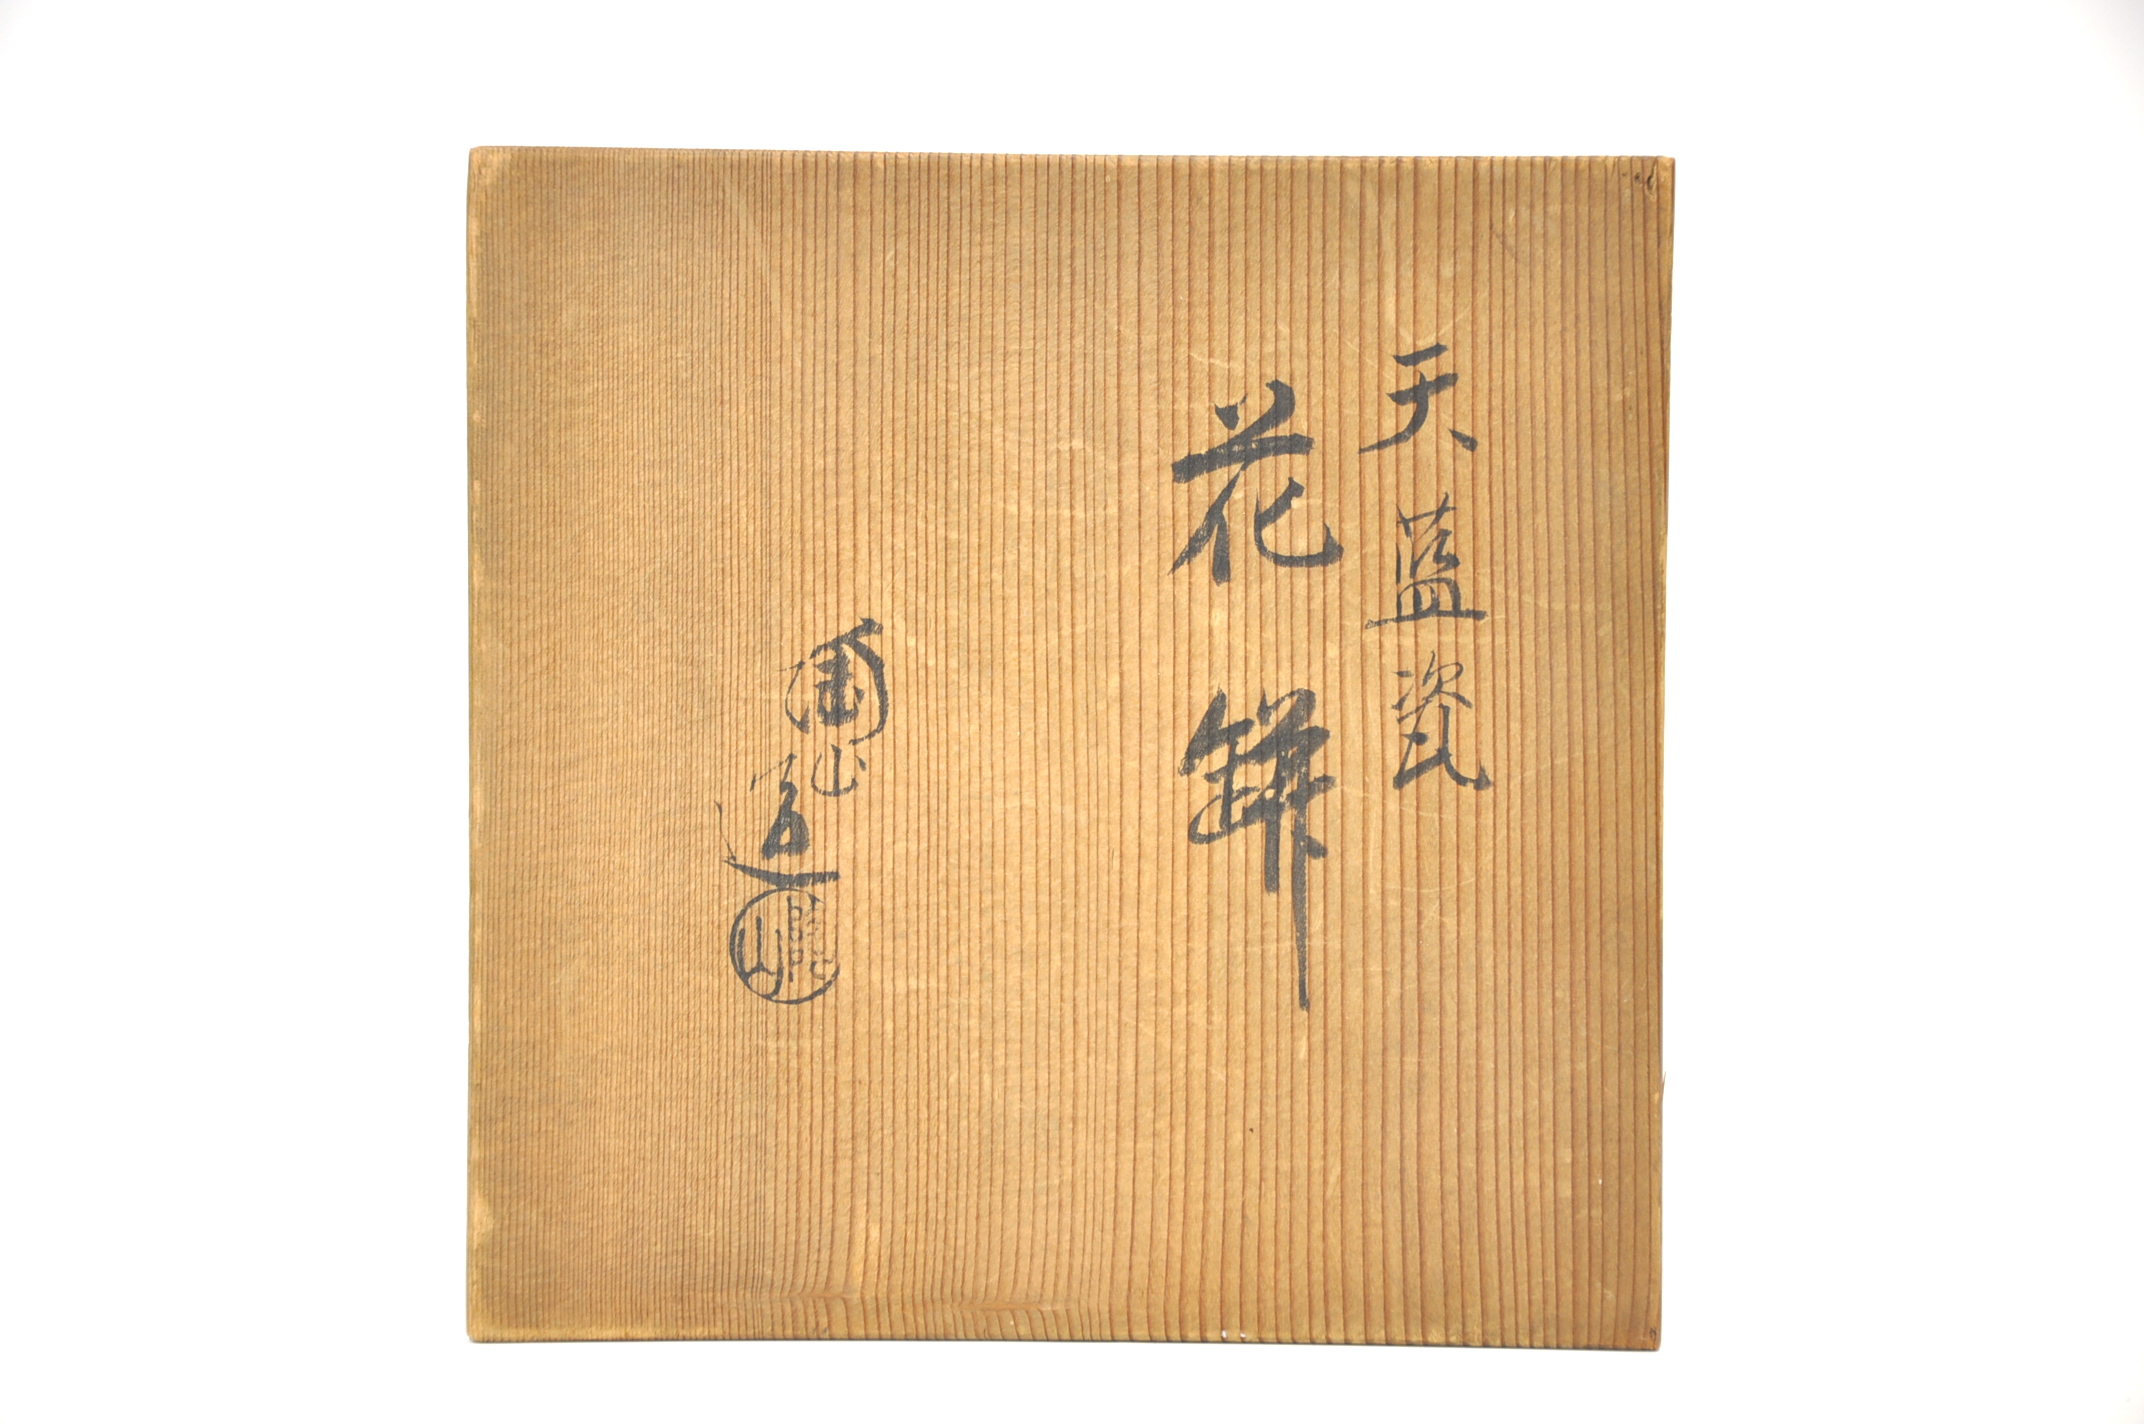 天藍瓷
花缾
陶山造
陶山